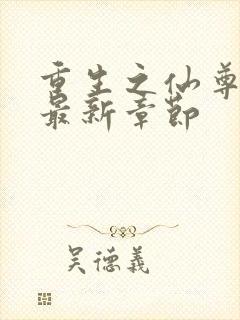 重生之仙尊
最新章节
吴德義